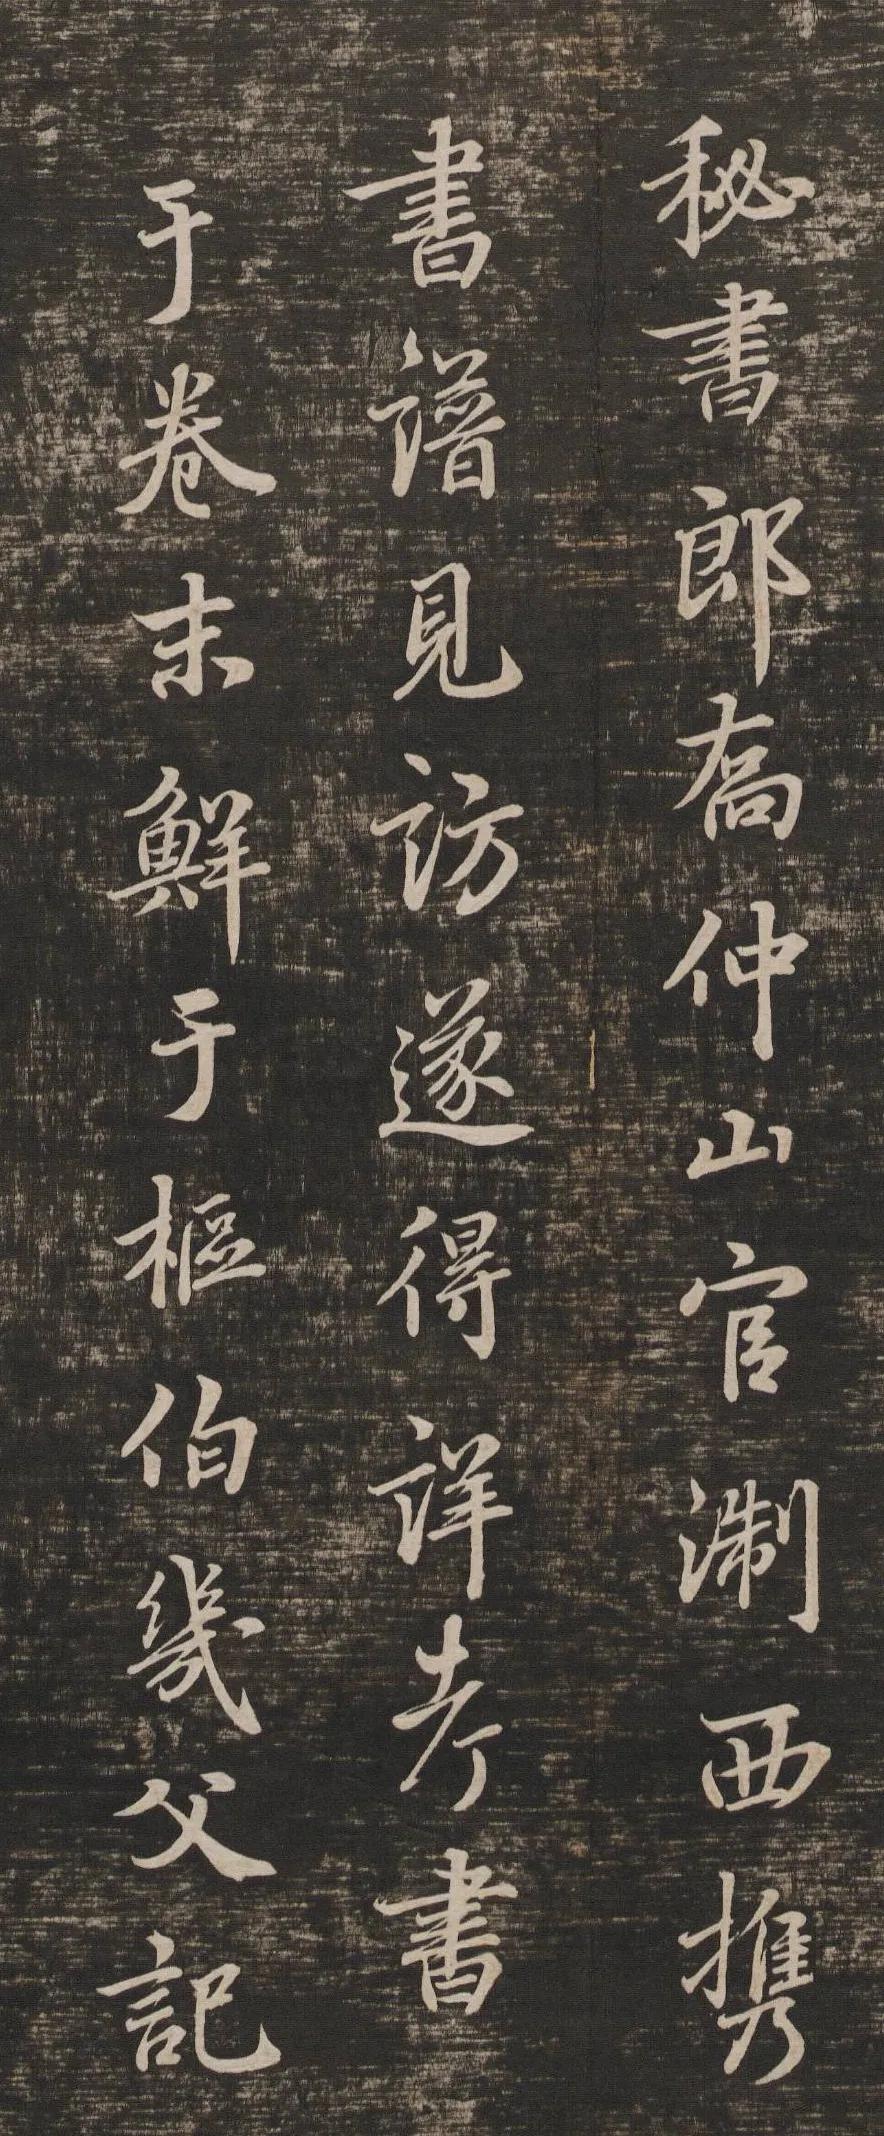 秘書郎喬仲山官淛西携
書譜見訪遂得詳考書
于卷末鮮于樞伯幾父記